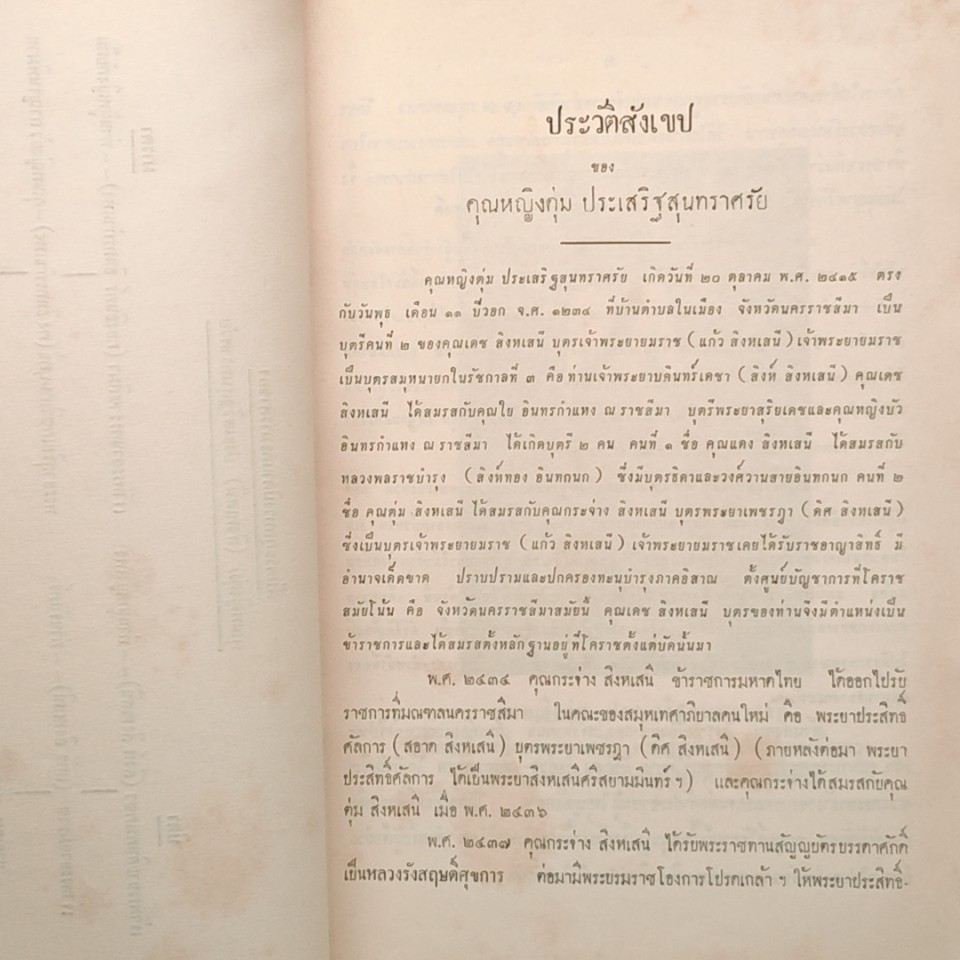 ประวัติสังเขป
ของ
คุณหญิงตุ่ม ประเสริฐสุนทราศรัย
คุณหญิงตุ่ม ประเสริฐสุนทราศรัย เกิดวันที่ ๒๐ ตุลาคม พ.ศ. ๒๔๑๕ ตรง
กับวันพุธ เดือน ๑๑ ปีวอก จ.ศ. ๑๒๓๔ ที่บ้านตำบลในเมือง จังหวัดนครราชสีมา เป็น
บุตรีคนที่ ๒ ของคุณเดช สิงหเสนี บุตรเจ้าพระยายมราช (แก้ว สิงหเสนี) เจ้าพระยายมราช
เป็นบุตรสมุหนายกในรัชกาลที่ ๓ คือท่านเจ้าพระยาบดินทร์เดชา (สิงห์ สิงหเสนี) คุณเดช
สิงหเสนี ได้สมรสกับคุณใย อินทรกำแหง ณ ราชสีมา บุตรีพระยาสุริยเดชและคุณหญิงบัว
อินทรกำแหง ณ ราชสีมา ได้เกิดบุตรี ๒ คน คนที่ ๑ ชื่อ คุณแดง สิงหเสนี ได้สมรสกับ
หลวงพลราชบำรุง (สิงห์ทอง อินทกนก) ซึ่งมีบุตรธิดาและวงศ์วานสายอินทกนก คนที่ ๒
ชื่อ คุณตุ่ม สิงหเสนี ได้สมรสกับคุณกระจ่าง สิงหเสนี บุตรพระยาเพชรฎา (ดิศ สิงหเสนี)
ซึ่งเป็นบุตรเจ้าพระยายมราช (แก้ว สิงหเสนี) เจ้าพระยายมราชเคยได้รับราชอาญาสิทธิ์ มี
อำนาจเด็ดขาด ปราบปรามและปกครองทะนุบำรุงภาคอิสาณ ตั้งศูนย์บัญชาการที่โคราช
สมัยโน้น คือ จังหวัดนครราชสีมาสมัยนี้ คุณเดช สิงหเสนี บุตรของท่านจึงมีตำแหน่งเป็น
ข้าราชการและได้สมรสตั้งหลักฐานอยู่ที่โคราชตั้งแต่บัดนั้นมา
พ.ศ. ๒๔๓๔ คุณกระจ่าง สิงหเสนี ข้าราชการมหาดไทย ได้ออกไปรับ
ราชการที่มณฑลนครราชสีมา ในคณะของสมุหเทศาภิบาลคนใหม่ คือ พระยาประสิทธิ์
ศัลการ (สอาด สิงหเสนี) บุตรพระยาเพชรฎา (ดิศ สิงหเสนี) (ภายหลังต่อมา พระยา
ประสิทธิ์ศัลการ ได้เป็นพระยาสิงหเสนีศรีสยามมินทร์ ฯ) และคุณกระจ่างได้สมรสกับคุณ
ตุ่ม สิงหเสนี เมื่อ พ.ศ. ๒๔๓๖
พ.ศ. ๒๔๓๗ คุณกระจ่าง สิงหเสนี ได้รับพระราชทานสัญญบัตรบรรดาศักดิ์
เป็นหลวงรังสฤษดิ์ศุขการ ต่อมามีพระบรมราชโองการโปรดเกล้า ฯ ให้พระยาประสิทธิ์-